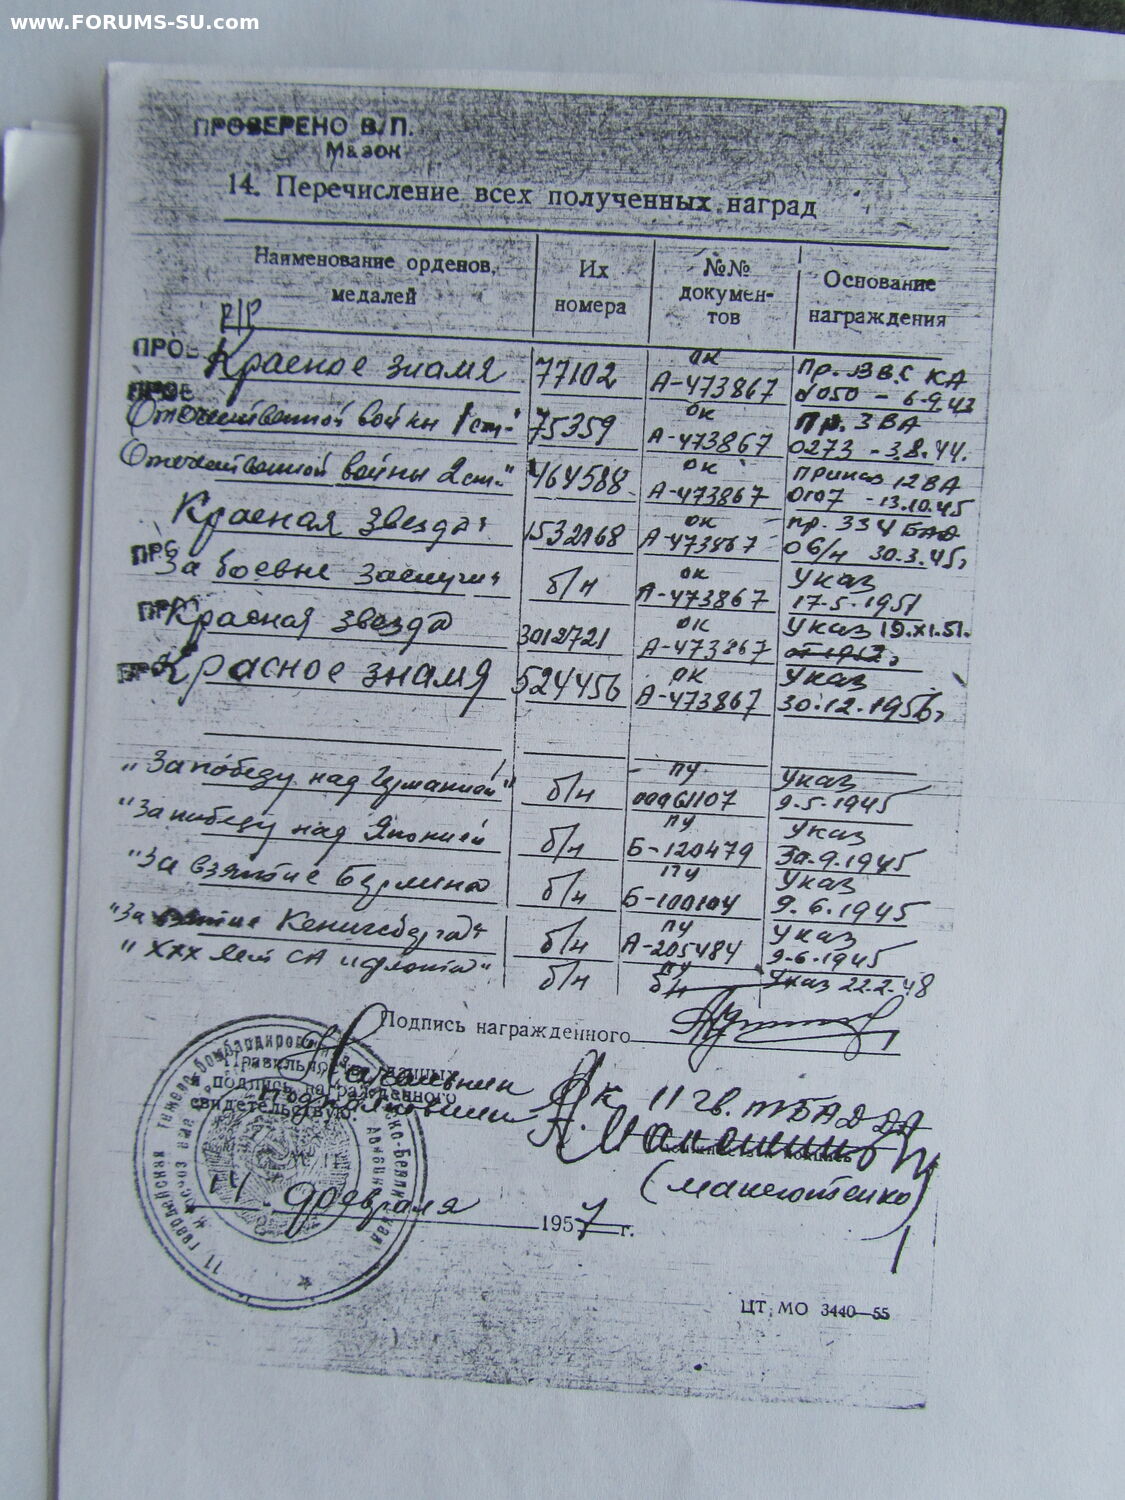 www.FORUMS-SU.com
ПРОВЕРЕНО В/П.
Мазок
14. Перечисление всех полученных наград
Наименование орденов, медалей
Их номера
№№ документов
Основание награждения
ПРОВ Красное знамя 77102 ок А-473867 Пр. ВВС КА 6.9.43
Отечественной войны 1 ст." 75359 ок А-473867 Пр. 3 ВА 0273 - 3.8.44.
Отечественной войны 2 ст." 464588 ок А-473867 Приказ 12 ВА 0107 - 13.10.45
Красная звезда 1532168 ок А-473867 пр. 334 БАД 06/н 30.3.45г
За боевые заслуги б/н ок А-473867 Указ 17.5.1951
Красная звезда 3012721 ок А-473867 Указ 19.XI.51.
Красное знамя 524456 ок А-473867 Указ 30.12.1956г
"За победу над Германией" б/н ПУ Указ 9.5.1945
"За победу над Японией б/н ПУ Б-120479 Указ 30.9.1945
"За взятие Берлина б/н ПУ Б-100104 Указ 9.6.1945
"За взятие Кенигсберга" б/н ПУ А-205484 Указ 9.6.1945
"XXX лет СА и флота" б/н ПУ б/н Указ 22.2.48
Подпись награжденного
Правильность данных
подпись награжденного
свидетельствую.
Начальник ОК 11 гв. тБАД ДА
подполковник
(Манютенко)
14 февраля 1957 г.
ЦТ МО 3440—55